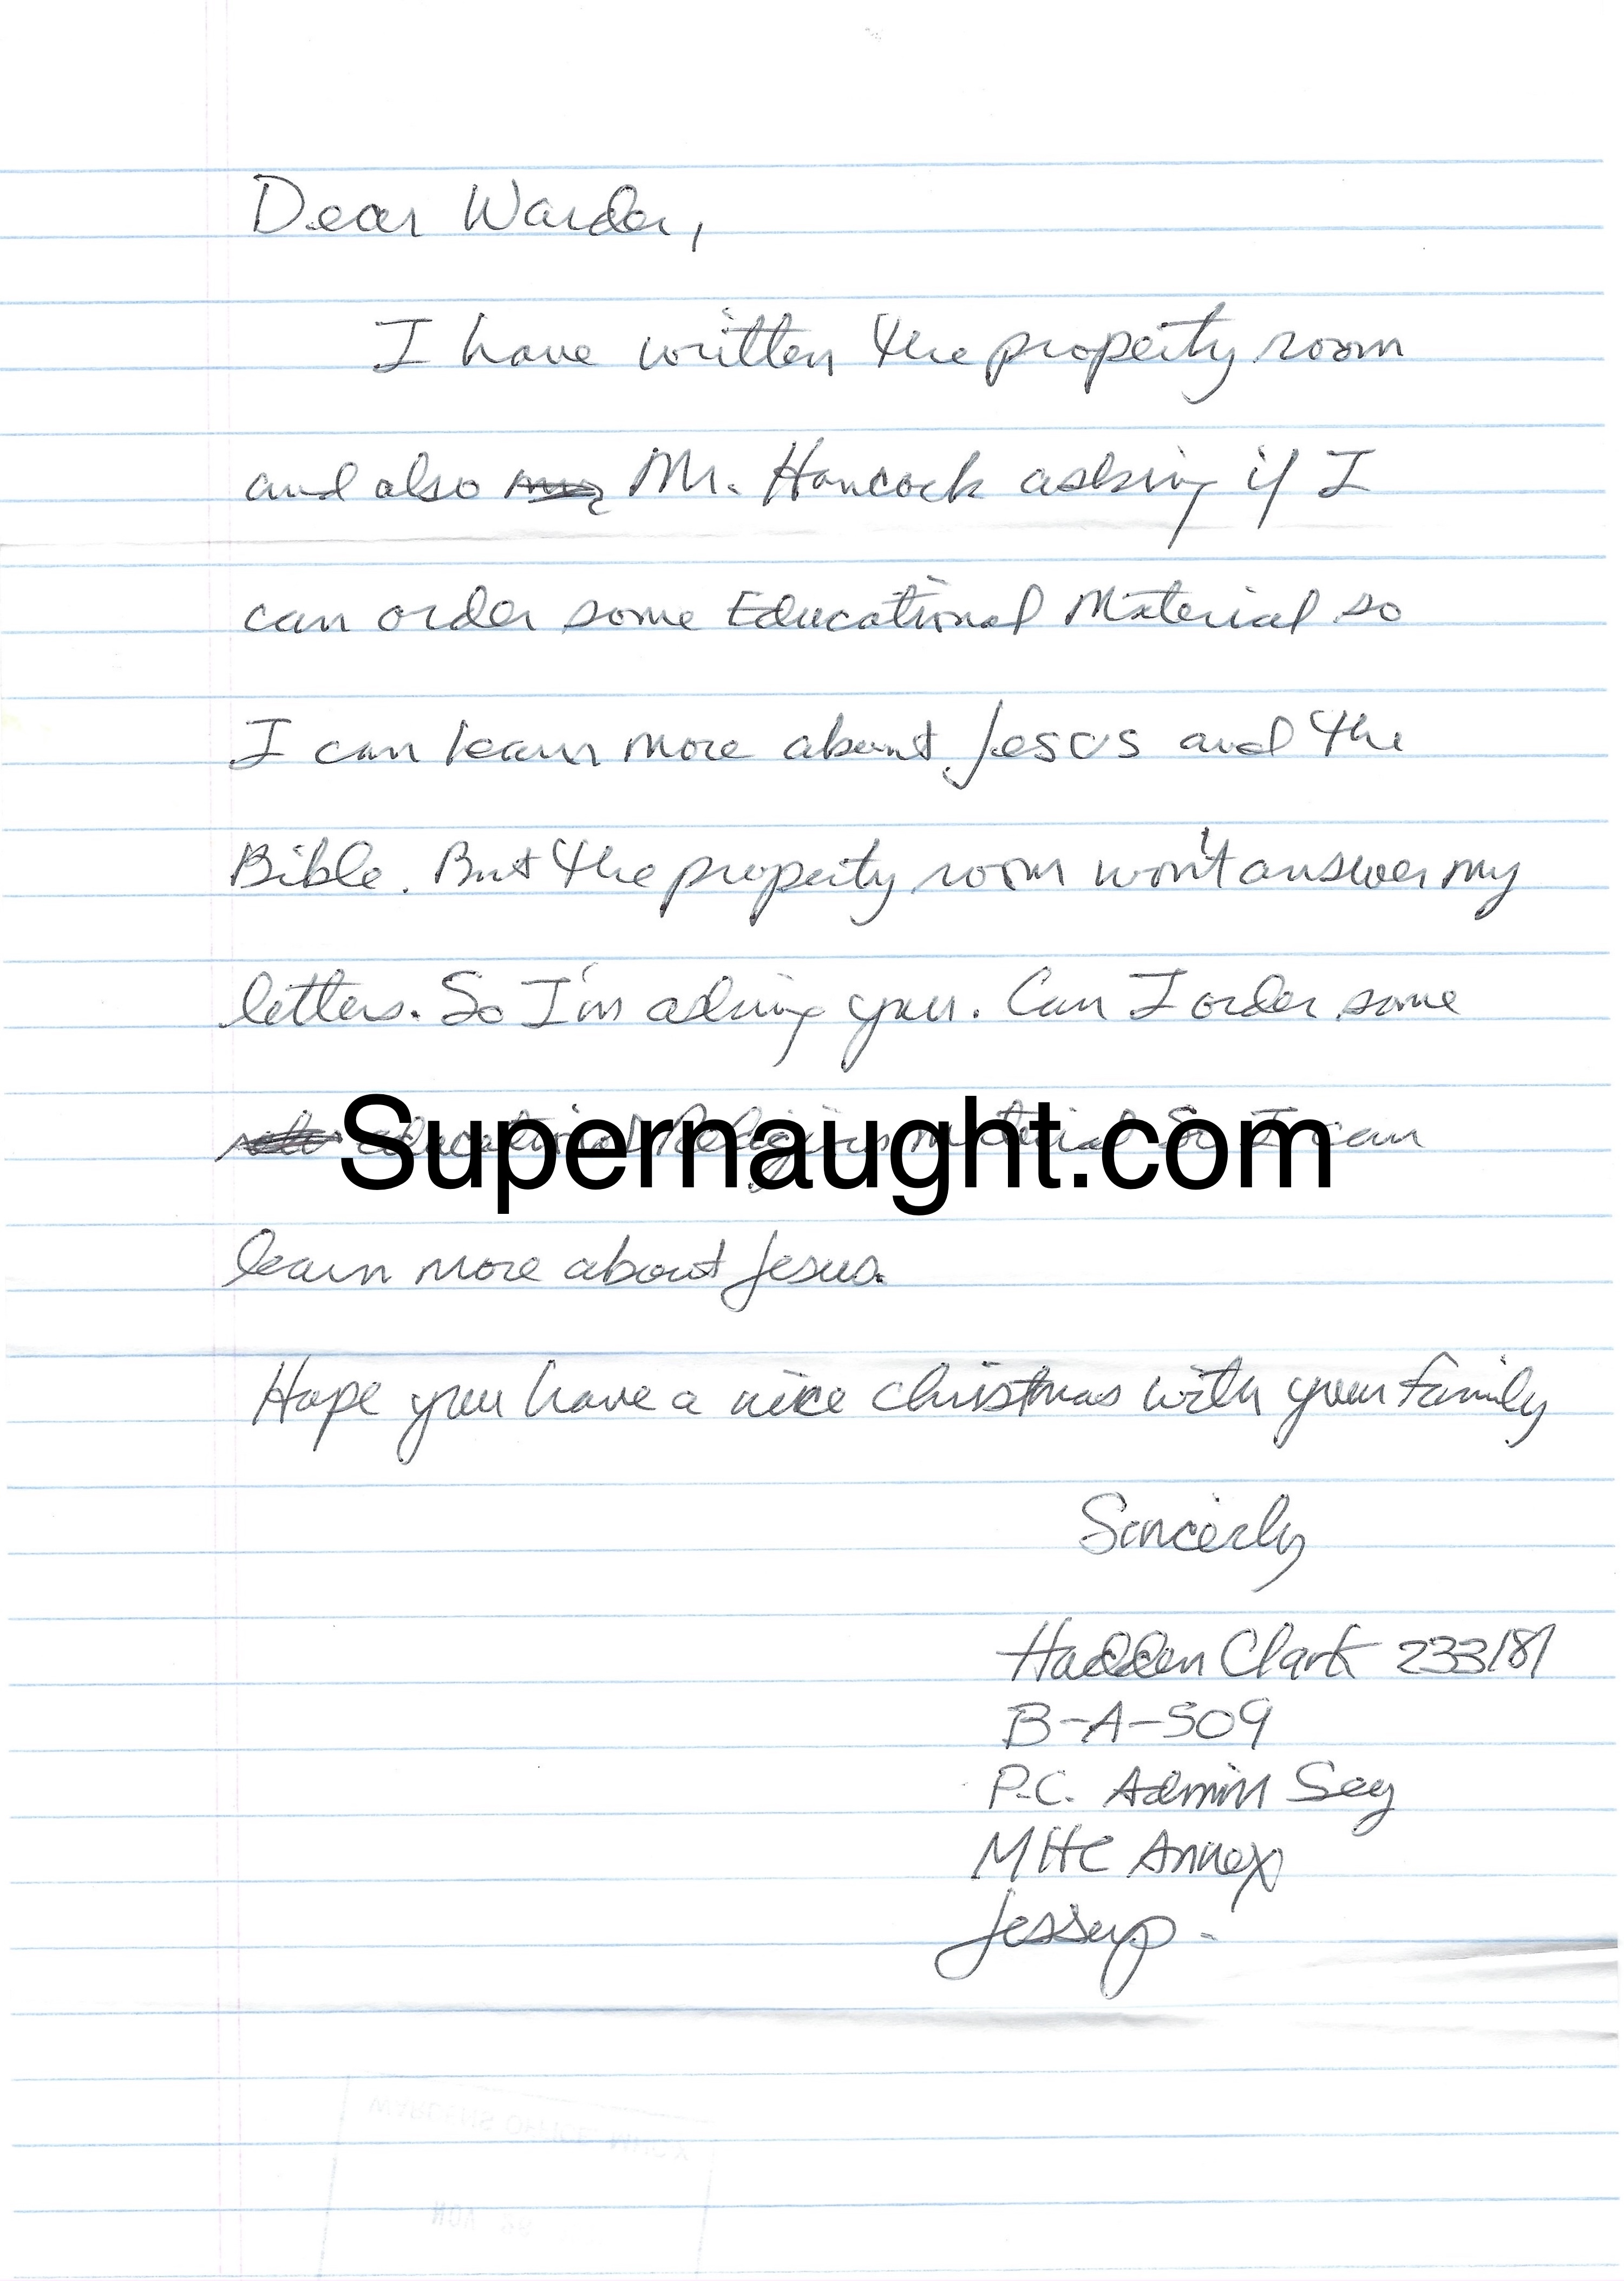 Dear Warden,
I have written the property room
and also Mr. Hancock asking if I
can order some Educational Material so
I can learn more about Jesus and the
Bible. But the property room won't answer my
letters. So I'm asking you. Can I order some
educational Religious material So I can
Supernaught.com
learn more about Jesus.
Hope you have a nice christmas with your family
Sincerly
Hadden Clark 233181
B-A-509
P.C. Admin Seg
MHC Annex
Jessup.
WARDENS OFFICE
NOV 28